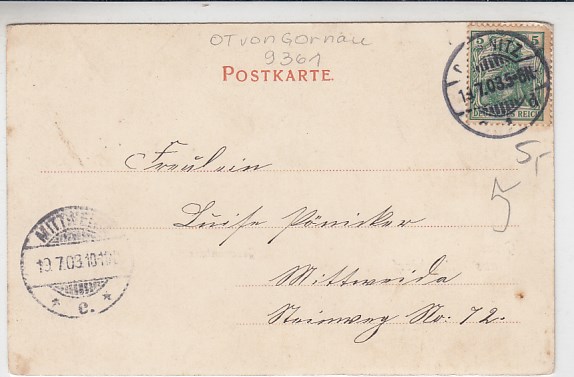 OT von Gornau
9361
POSTKARTE.
5
NITZ
19.7.03.5-6N.
d
REICH
5,-
5
Fräulein
Luise Pönicker
Mittweida
Steinweg No: 72.
MITTWEIDA
19.7.03.10-
* c. *